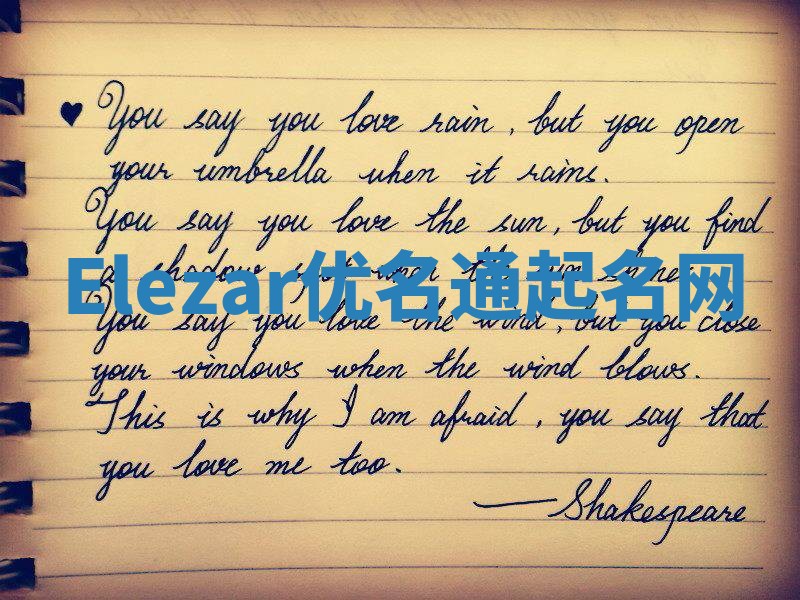 ♥ You say you love rain, but you open
your umbrella when it rains.
You say you love the sun, but you find
a shadow spot when the sun shines.
Elezar优名通起名网
You say you love the wind, but you close
your windows when the wind blows.
This is why I am afraid, you say that
you love me too.
—Shakespeare